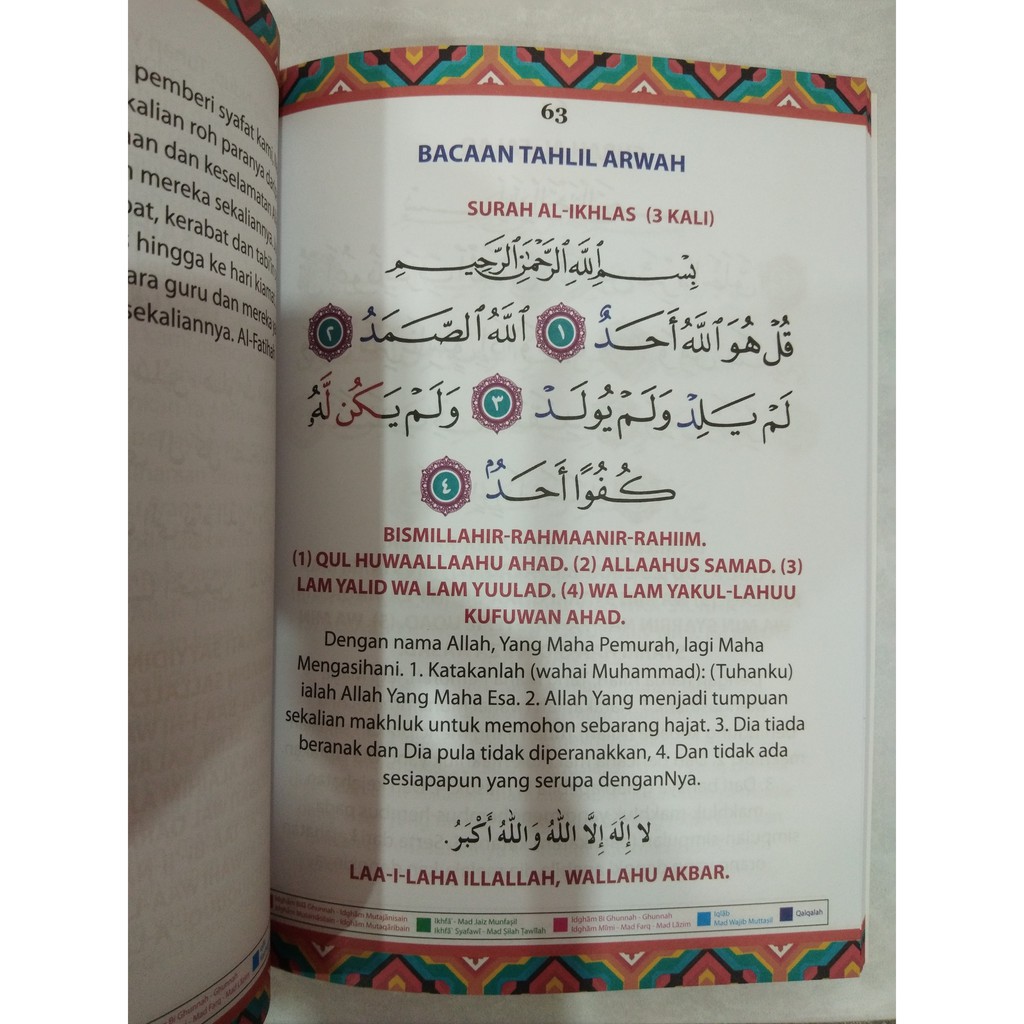 pemberi syafat kami
kalian roh paranya
dan keselamatan
mereka sekaliannya
kerabat dan
hingga ke hari kiamat
guru dan mereka
sekaliannya. Al-Fatihah
63
BACAAN TAHLIL ARWAH
SURAH AL-IKHLAS (3 KALI)
بِسْمِ ٱللَّهِ ٱلرَّحْمَٰنِ ٱلرَّحِيمِ
قُلْ هُوَ ٱللَّهُ أَحَدٌ ١ ٱللَّهُ ٱلصَّمَدُ ٢
لَمْ يَلِدْ وَلَمْ يُولَدْ ٣ وَلَمْ يَكُن لَّهُۥ
كُفُوًا أَحَدٌۢ ٤
BISMILLAHIR-RAHMAANIR-RAHIIM.
(1) QUL HUWAALLAAHU AHAD. (2) ALLAAHUS SAMAD. (3)
LAM YALID WA LAM YUULAD. (4) WA LAM YAKUL-LAHUU
KUFUWAN AHAD.
Dengan nama Allah, Yang Maha Pemurah, lagi Maha
Mengasihani. 1. Katakanlah (wahai Muhammad): (Tuhanku)
ialah Allah Yang Maha Esa. 2. Allah Yang menjadi tumpuan
sekalian makhluk untuk memohon sebarang hajat. 3. Dia tiada
beranak dan Dia pula tidak diperanakkan, 4. Dan tidak ada
sesiapapun yang serupa denganNya.
لاَ إِلَهَ إِلَّا اللهُ وَاللهُ أَكْبَرُ.
LAA-I-LAHA ILLALLAH, WALLAHU AKBAR.
Ghunnah - Idghām Mutajānisain
Idghām Mutaqāribain
Ikhfā' - Mad Jaiz Munfaşil
Ikhfā' Syafawī - Mad Şilah Ţawīlah
Idghām Bi Ghunnah - Ghunnah
Idghām Mīmi - Mad Farq - Mad Lāzim
Iqlāb
Mad Wajib Muttaşil
Qalqalah
Bi Ghunnah - Ghunnah
Mad Farq - Mad Lāzim